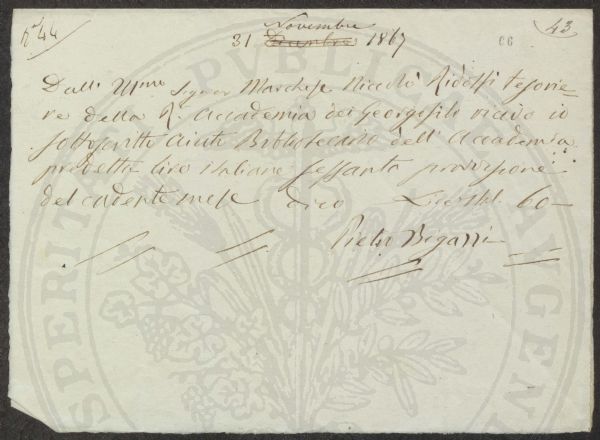 No 44
43
Novembre
31 Decembre 1867
66
Dall' Illmo Signor Marchese Niccolò Ridolfi Tesorie
re della R. Accademia dei Georgofili ricevo io
sottoscritto Aiuto Bibliotecario dell' Accademia
predetta lire italiane sessanta provvisione
del cadente mese dico Lire ital. 60 —
Pietro Bigazzi
PROSPERITATI PUBLICAE AUGENDAE